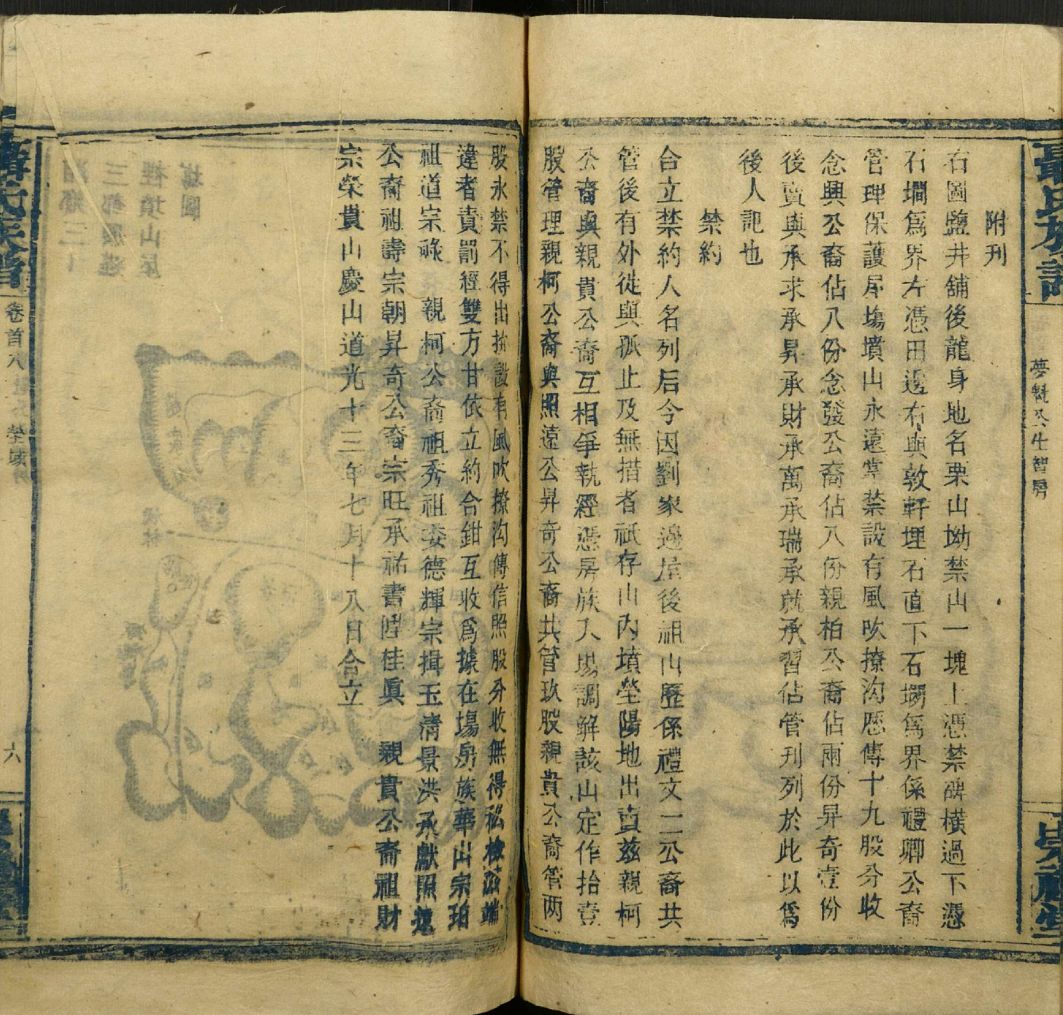 附刊
右圖鹽井舖後龍身地名栗山坳禁山一塊上憑禁碑橫過下憑
石墹爲界左憑田邊右與敦軒埋石直下石墹爲界係禮卿公裔
管理保護屋塲墳山永遠掌禁設有風吹撩沟歷傳十九股分收
念興公裔佔八份念發公裔佔八份親柏公裔佔兩份昇奇壹份
後賣與承求承昇承財承萬承瑞承就承習佔管刊列於此以爲
後人記也
禁約
合立禁約人名列后今因劉家邊屋後祖山歷係禮文二公裔共
管後有外徙與孤止及無措者祇存山內墳塋陽地出賣茲親柯
公裔與親貴公裔互相爭執經憑房族入塲調解該山定作拾壹
股管理親柯公裔與照遠公昇奇公裔共管玖股親貴公裔管两
股永禁不得出拚設有風吹撩沟傳信照股分收無得私檢茲端
違者責罰經雙方甘依立約合鉗互收爲據在塲房族華山宗珀
祖道宗祿 親柯公裔祖秀祖委德輝宗揖玉清景洪承獻照遠
公裔祖壽宗朝昇奇公裔宗旺承祐書陞佳眞 親貴公裔祖財
宗榮貴山慶山道光十三年七月十八日合立
卷首八
六